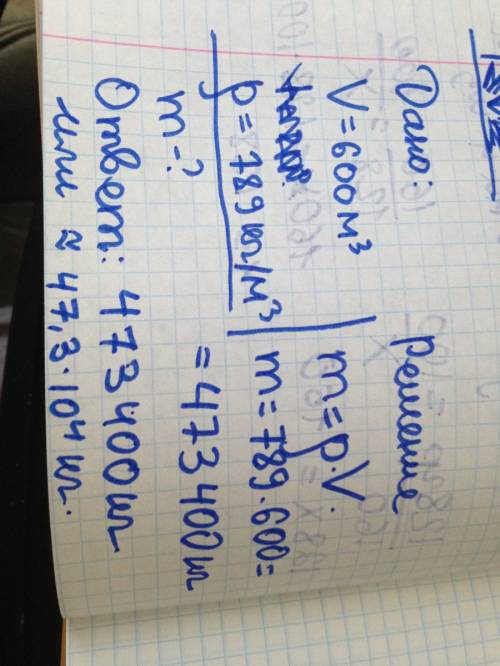 Дано:
V = 600 м³
ρ = 789 кг/м³
m - ?
Решение
m = ρ · V
m = 789 · 600 =
= 473 400 кг
Ответ: 473 400 кг
или ≈ 47,3 · 10⁴ кг.